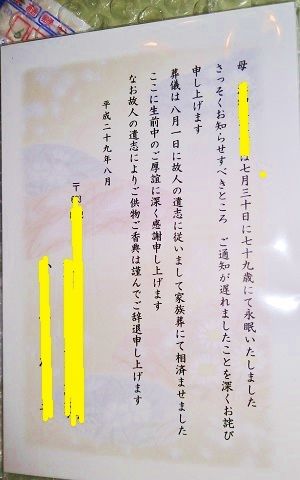 母　は七月三十日に七十九歳にて永眠いたしました
さっそくお知らせすべきところ　ご通知が遅れましたことを深くお詫び
申し上げます
葬儀は八月一日に故人の遺志に従いまして家族葬にて相済ませました
ここに生前中のご厚誼に深く感謝申し上げます
なお故人の遺志によりご供物ご香典は謹んでご辞退申し上げます
平成二十九年八月
〒